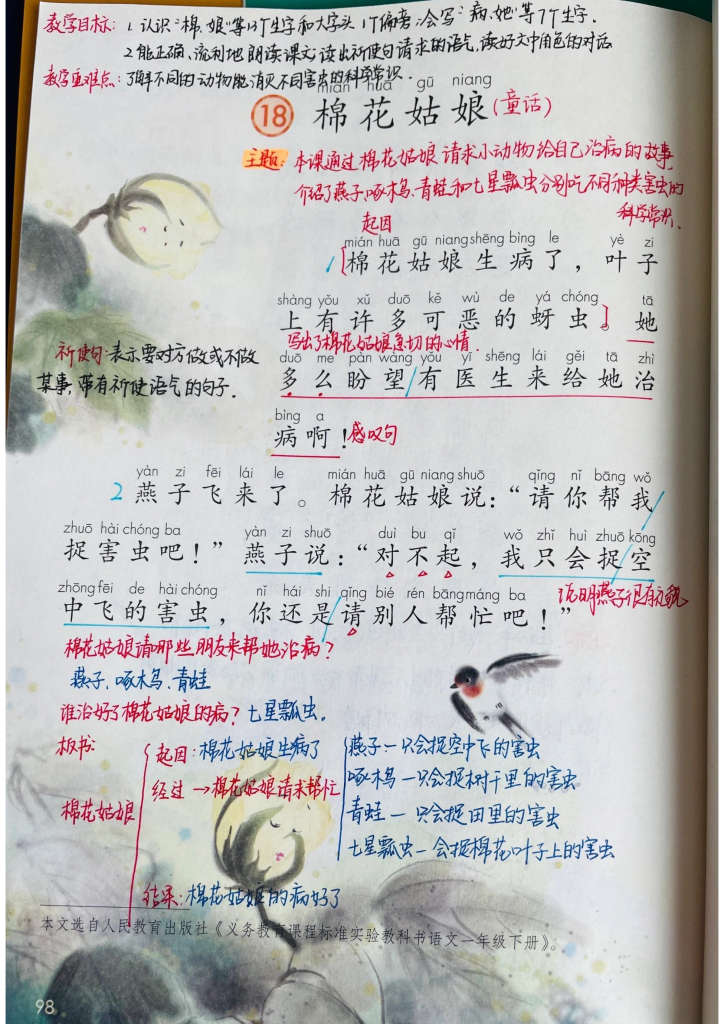 教学目标：1.认识“棉、娘”等13个生字和大字头1个偏旁；会写“病、她”等7个生字．
2.能正确、流利地朗读课文；读出祈使句请求的语气，读好文中角色的对话
教学重难点：了解不同的动物能消灭不同害虫的科学常识．
mián huā gū niang
18 棉花姑娘（童话）
主题：本课通过棉花姑娘请求小动物给自己治病的故事
介绍了燕子、啄木鸟、青蛙和七星瓢虫分别吃不同种类害虫的
科学常识．
起因
mián huā gū niang shēng bìng le yè zi
1 棉花姑娘生病了，叶子
shàng yǒu xǔ duō kě wù de yá chóng tā
上有许多可恶的蚜虫。她
写出了棉花姑娘急切的心情．
祈使句：表示要对方做或不做
某事，带有祈使语气的句子．
duō me pàn wàng yǒu yī shēng lái gěi tā zhì
多么盼望有医生来给她治
bìng a
病啊！感叹句
yàn zi fēi lái le mián huā gū niang shuō qǐng nǐ bāng wǒ
2 燕子飞来了。棉花姑娘说：“请你帮我
zhuō hài chóng ba yàn zi shuō duì bu qǐ wǒ zhǐ huì zhuō kōng
捉害虫吧！”燕子说：“对不起，我只会捉空
zhōng fēi de hài chóng nǐ hái shi qǐng bié rén bāng máng ba
中飞的害虫，你还是请别人帮忙吧！”
说明燕子很有礼貌
棉花姑娘请哪些朋友来帮她治病？
燕子、啄木鸟、青蛙
谁治好了棉花姑娘的病？七星瓢虫．
板书：
棉花姑娘
起因：棉花姑娘生病了
经过→棉花姑娘请求帮忙
燕子—只会捉空中飞的害虫
啄木鸟—只会捉树干里的害虫
青蛙—只会捉田里的害虫
七星瓢虫—会捉棉花叶子上的害虫
结果：棉花姑娘的病好了
本文选自人民教育出版社《义务教育课程标准实验教科书语文一年级下册》。
98